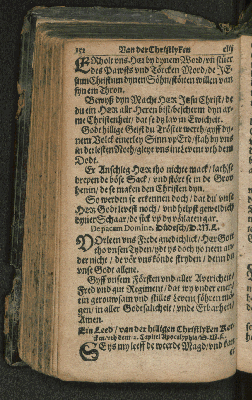 152 Van der Christlyken clij
ERholt vns Her by dynem Word/vn stüer
des Pawsts vnd Törcken Mord/de JE-
sum Christum dynen Söhn/stöten willen van
synem Thron.
Bewyß dyn Macht HEr Jesu Christ/de
du ein HEr aller Heren bist/bescherm dyn ar-
me Christenheit/dat se dy law in Ewicheit.
Godt hillige Geist du Tröster werth/giff dy-
nem Volck einerley Sinn vp Erd/stah by vns
in der lesten Noth/gleyt vns int Leuen vth dem
Dodt.
Er Anschleg HEr tho nichte mack/lath se
drepen de böse Sack/vnd stört se in de Grove
henin/de se maken den Christen dyn.
So werden se erkennen doch/dat du vnse
Her Godt levest noch/vnd helpst geweldich
dyner Schaar/de sick vp dy vörlaten gar.
Da pacem Domine. Düdesch/D.M.L.
VOrlen vns Frede gnedichlick/HEr Godt
tho vnsen Tyden/ydt ys doch yo neen an-
der nicht/de vör vns könde stryden/denn du
vnse Godt allene.
Giff vnsem Försten vnd aller Avericheit/
Fred vnd gut Regiment/dat wy vnder en/
ein gerouwsam vnd stilles Leuent föhren mö-
gen/in aller Godsalicheit/vnde Erbarheit/
Amen.
Ein Leed/van der hilligen Christlyken Ker-
ken/vth dem 12. Capitel Apocalypsis/D.M.L.
SE ys my leeff de werde Magd/vnd kan